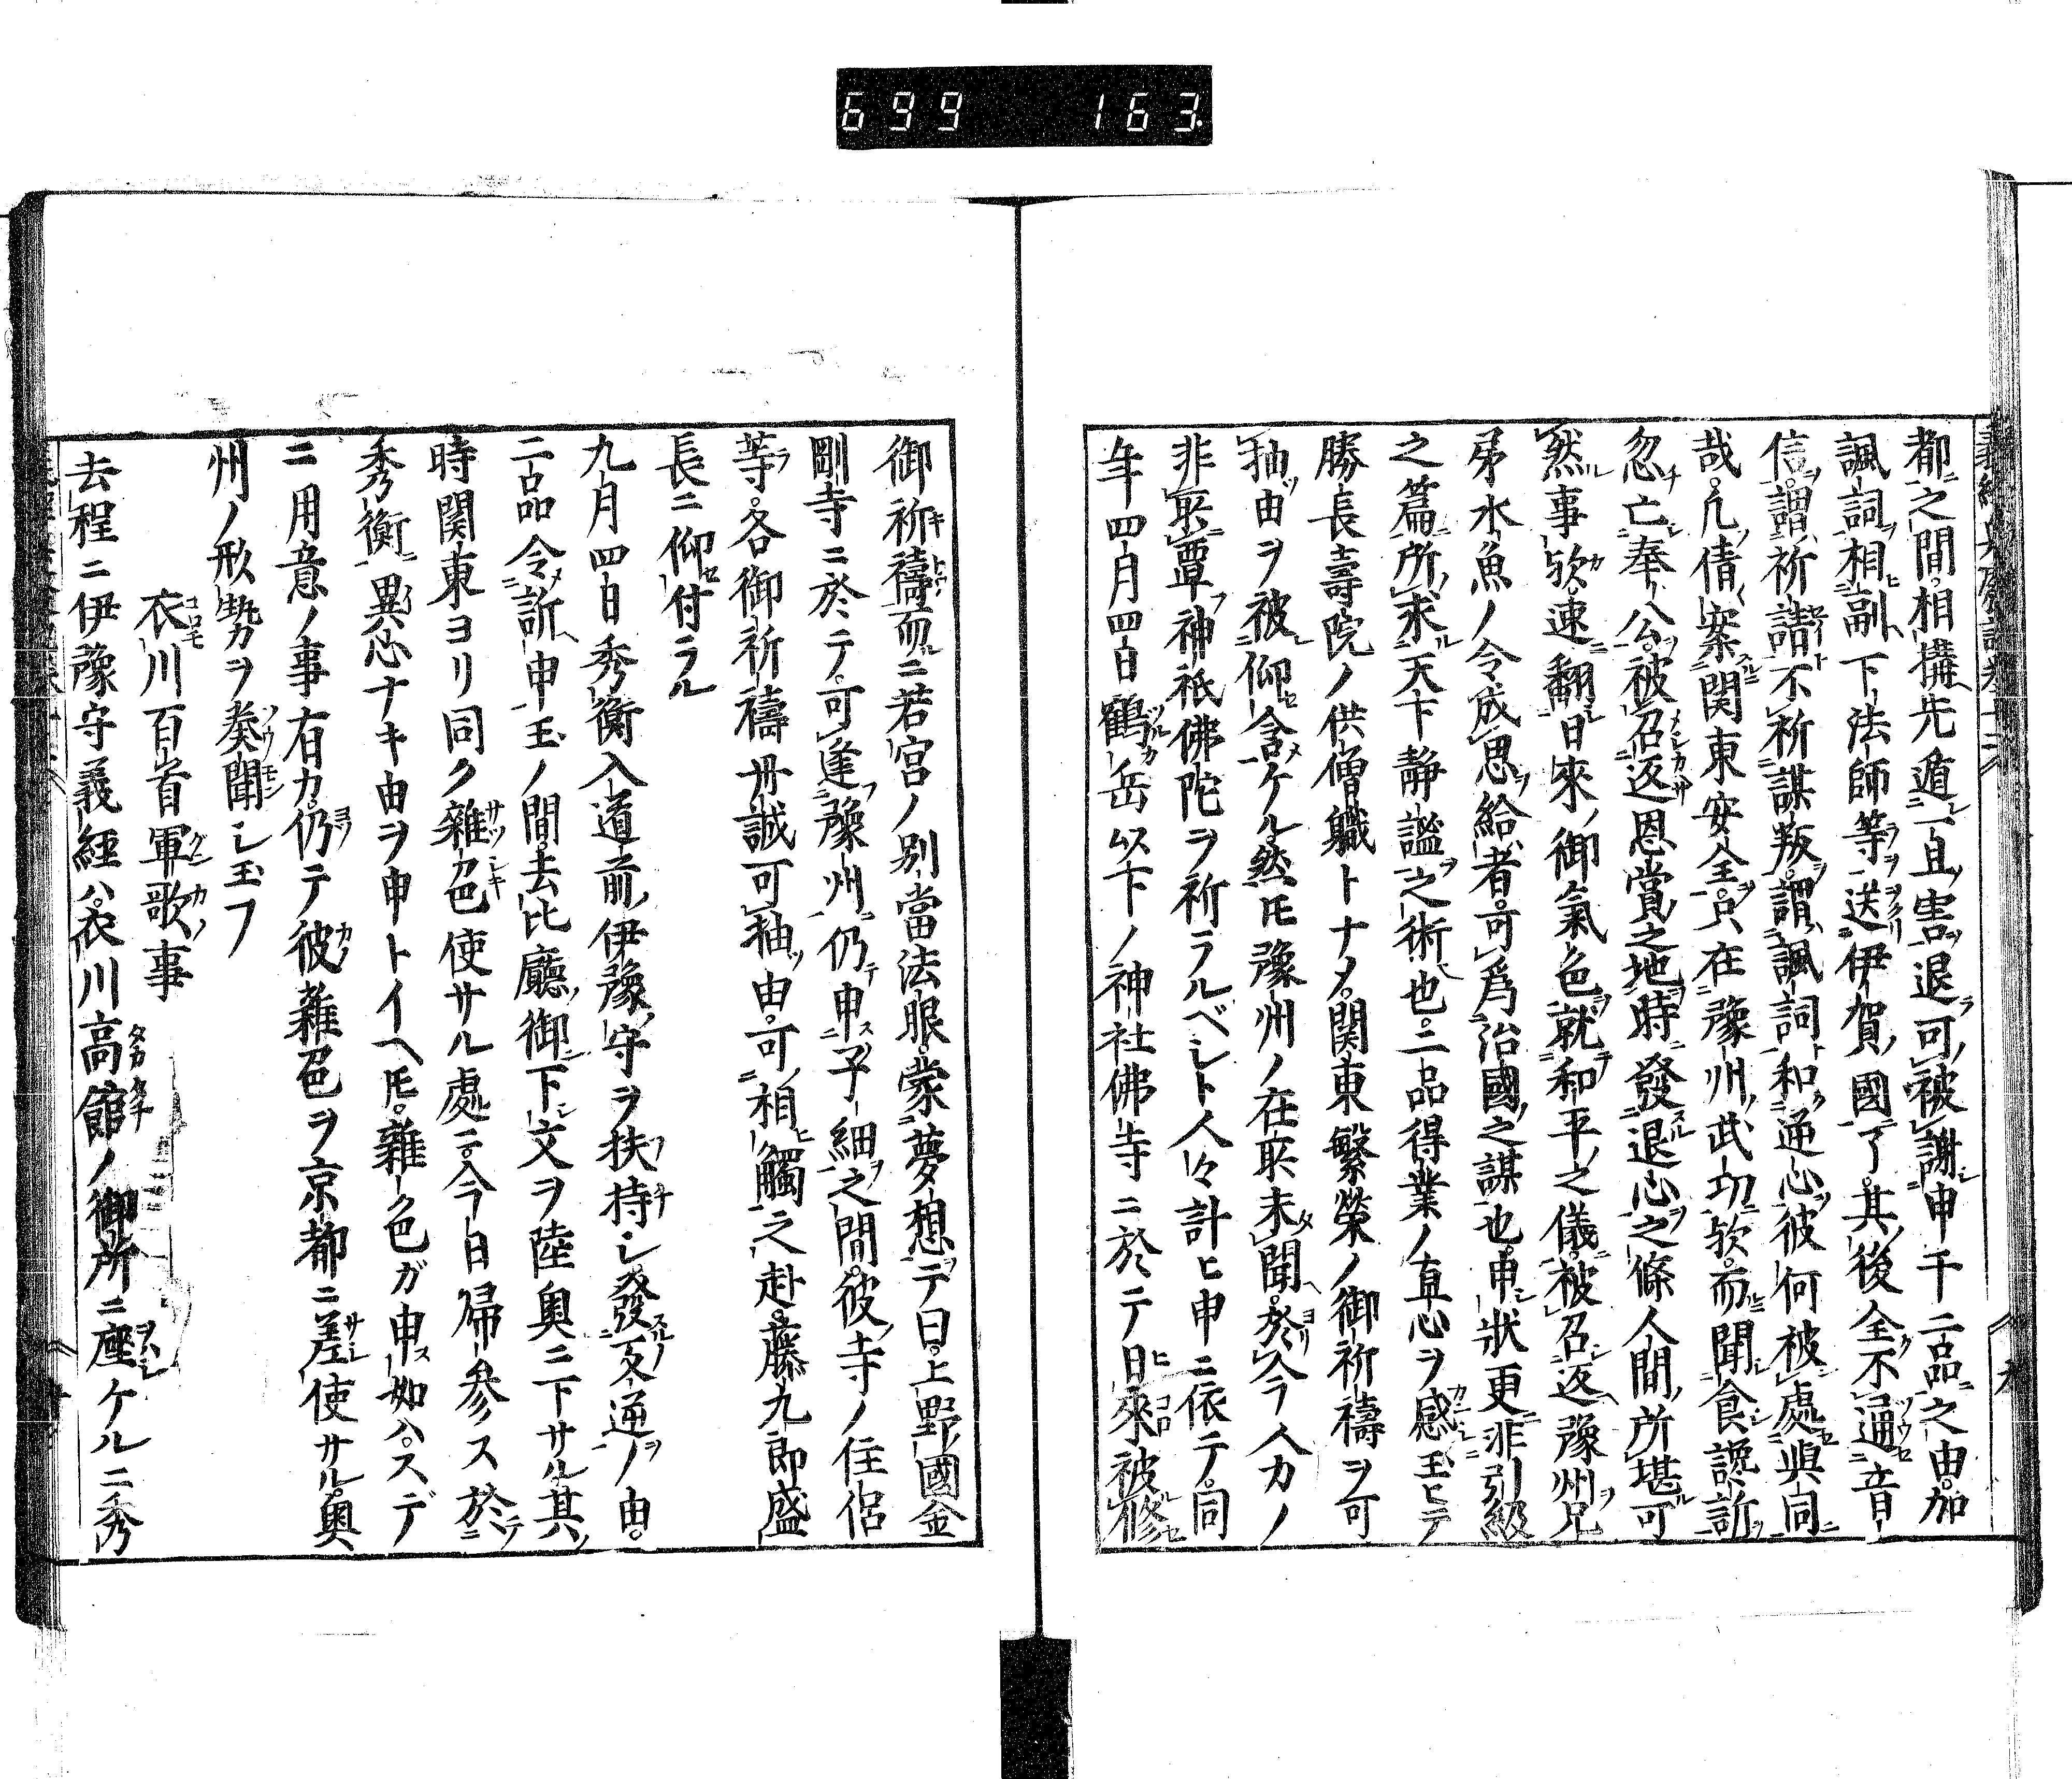 699 163
都之間相搆先遁一旦害退可被謝申于二品之由加
諷詞相副下法師等送伊賀國了其後全不通音
信謂祈請不祈謀叛謂諷詞和通心彼何被處與同
哉凡倩案関東安全只在豫州武功欤而聞食讒訴
忽亡奉公被召返恩賞之地時發退心之條人間所堪可
然事欤速翻日來御氣色就和平之儀被召返豫州兄
弟水魚ノ令成思給者可爲治國之謀也申狀更非引級
之篇所求天下靜謐之術也二品得業ノ直心ヲ感玉ヒテ
勝長壽院ノ供僧職トナメ関東繁榮ノ御祈禱ヲ可
抽由ヲ被仰含ケル然圧豫州ノ在所未聞於今人力ノ
非所覃神祇佛陀ヲ祈ラルベシト人々計ヒ申ニ依テ同
年四月四日鶴岳以下ノ神社佛寺ニ於テ日來被修
御祈禱而ニ若宮ノ別當法眼蒙夢想テ曰上野國金
剛寺ニ於テ可逢豫州仍申子細之間彼寺ノ住侶
等各御祈禱丹誠可抽由可相觸之赴藤九郎盛
長ニ仰付ラル
九月四日秀衡入道前伊豫守ヲ扶持シ發反逆ノ由
二品令訴申玉ノ間去比廳御下文ヲ陸奥ニ下サル其
時関東ヨリ同ク雜色使サル處ニ今日帰参ス於
秀衡異心ナキ由ヲ申トイヘ圧雜色ガ申如ハスデ
ニ用意ノ事有カ仍テ彼雜色ヲ京都ニ差使サル奥
州ノ形勢ヲ奏聞シ玉フ
衣川百首軍歌事
去程ニ伊豫守義經ハ衣川高館ノ御所ニ座ケルニ秀